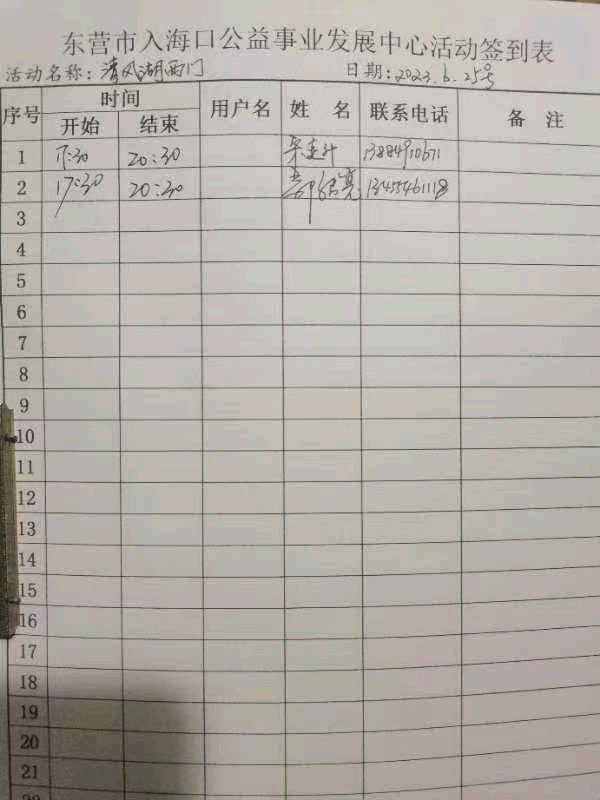 东营市入海口公益事业发展中心活动签到表
活动名称：清风湖西门 日期：2023.6.25号
序号 时间 用户名 姓 名 联系电话 备 注
开始 结束
1 17:30 20:30 13884910671
2 17:30 20:30 13455461118
3
4
5
6
7
8
9
10
11
12
13
14
15
16
17
18
19
20
21